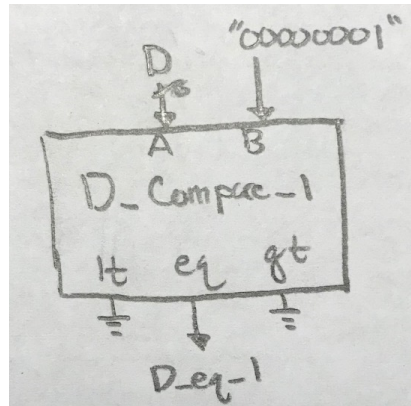 "00000001"
D
8
A B
D_Compare_1
lt eq gt
D_eq_1